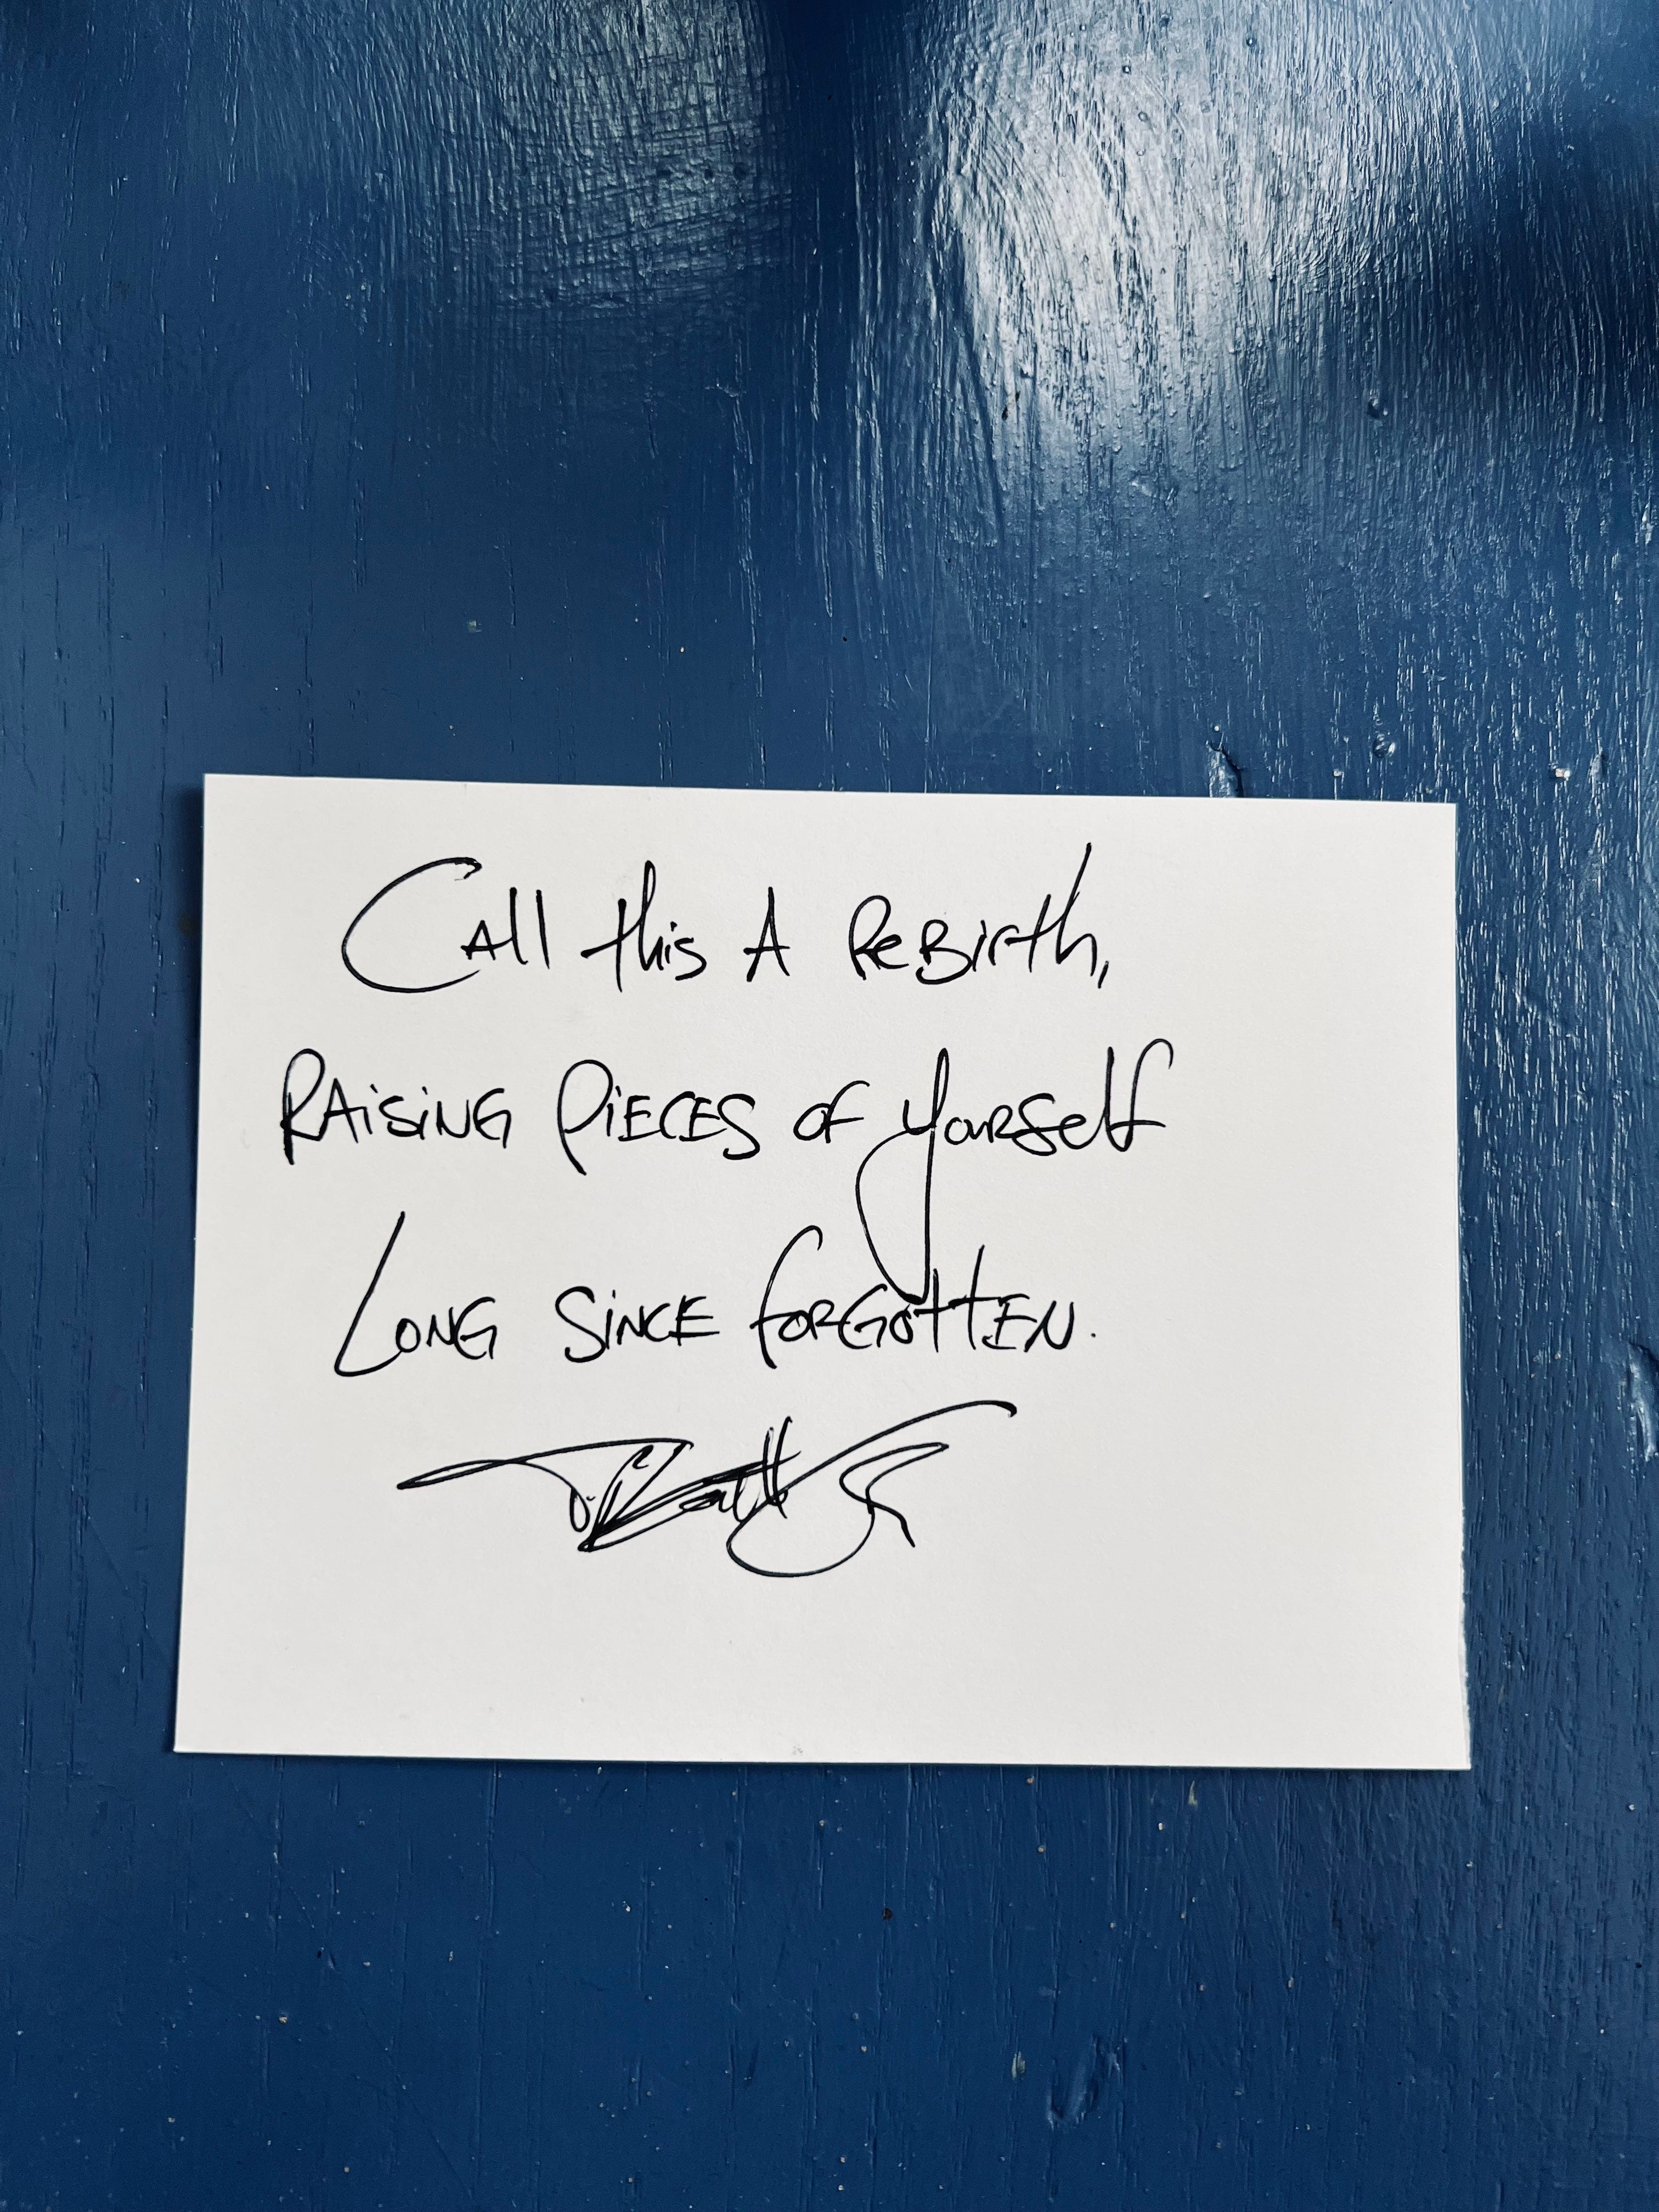 Call this A ReBirth,
RAiSiNG PiECES OF yourself
LONG SiNCE FORGOTTEN.